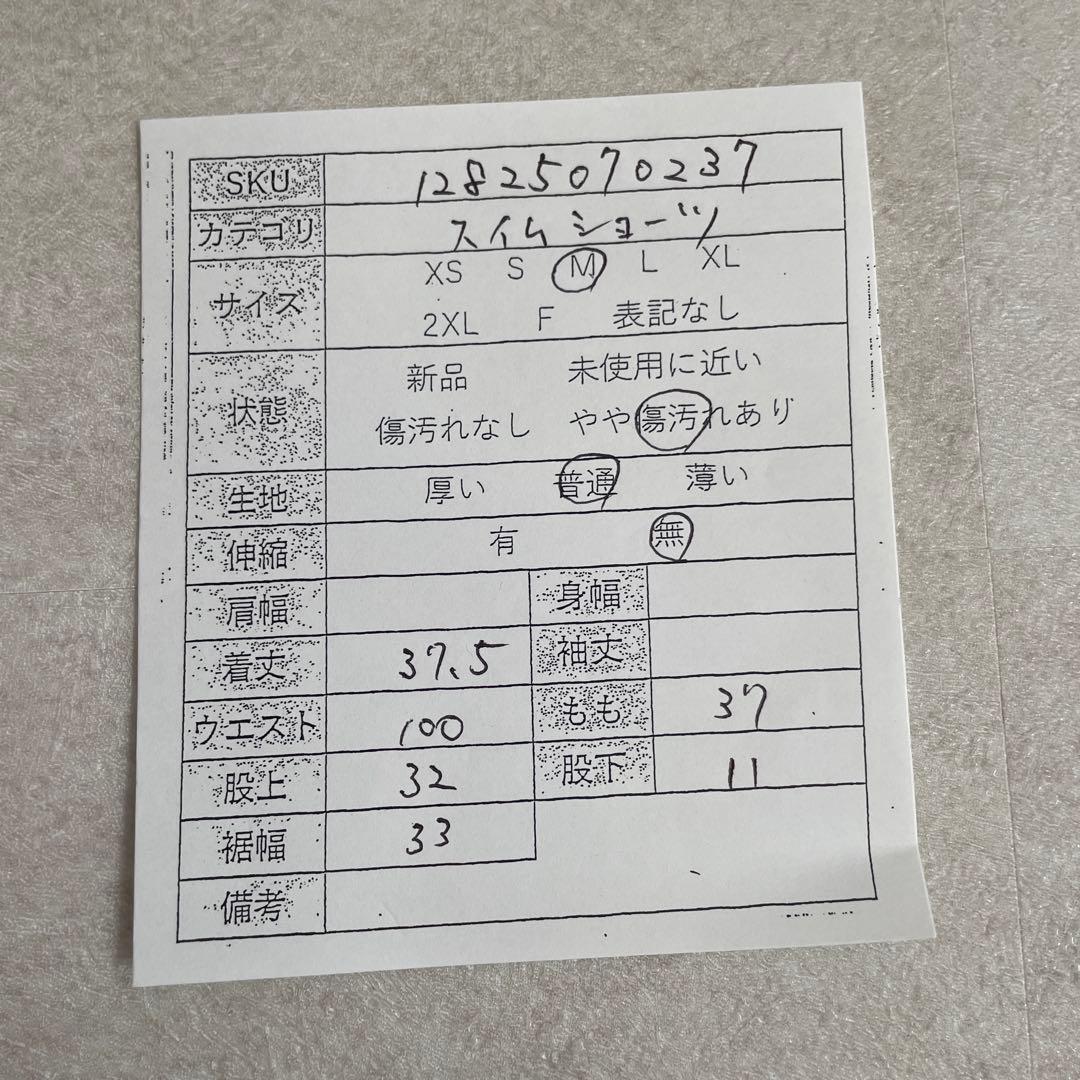 SKU 12825070237
カテゴリ スイムショーツ
サイズ XS S M L XL
2XL F 表記なし
状態 新品 未使用に近い
傷汚れなし やや傷汚れあり
生地 厚い 普通 薄い
伸縮 有 無
肩幅 身幅
着丈 37.5 袖丈
ウエスト 100 もも 37
股上 32 股下 11
裾幅 33
備考